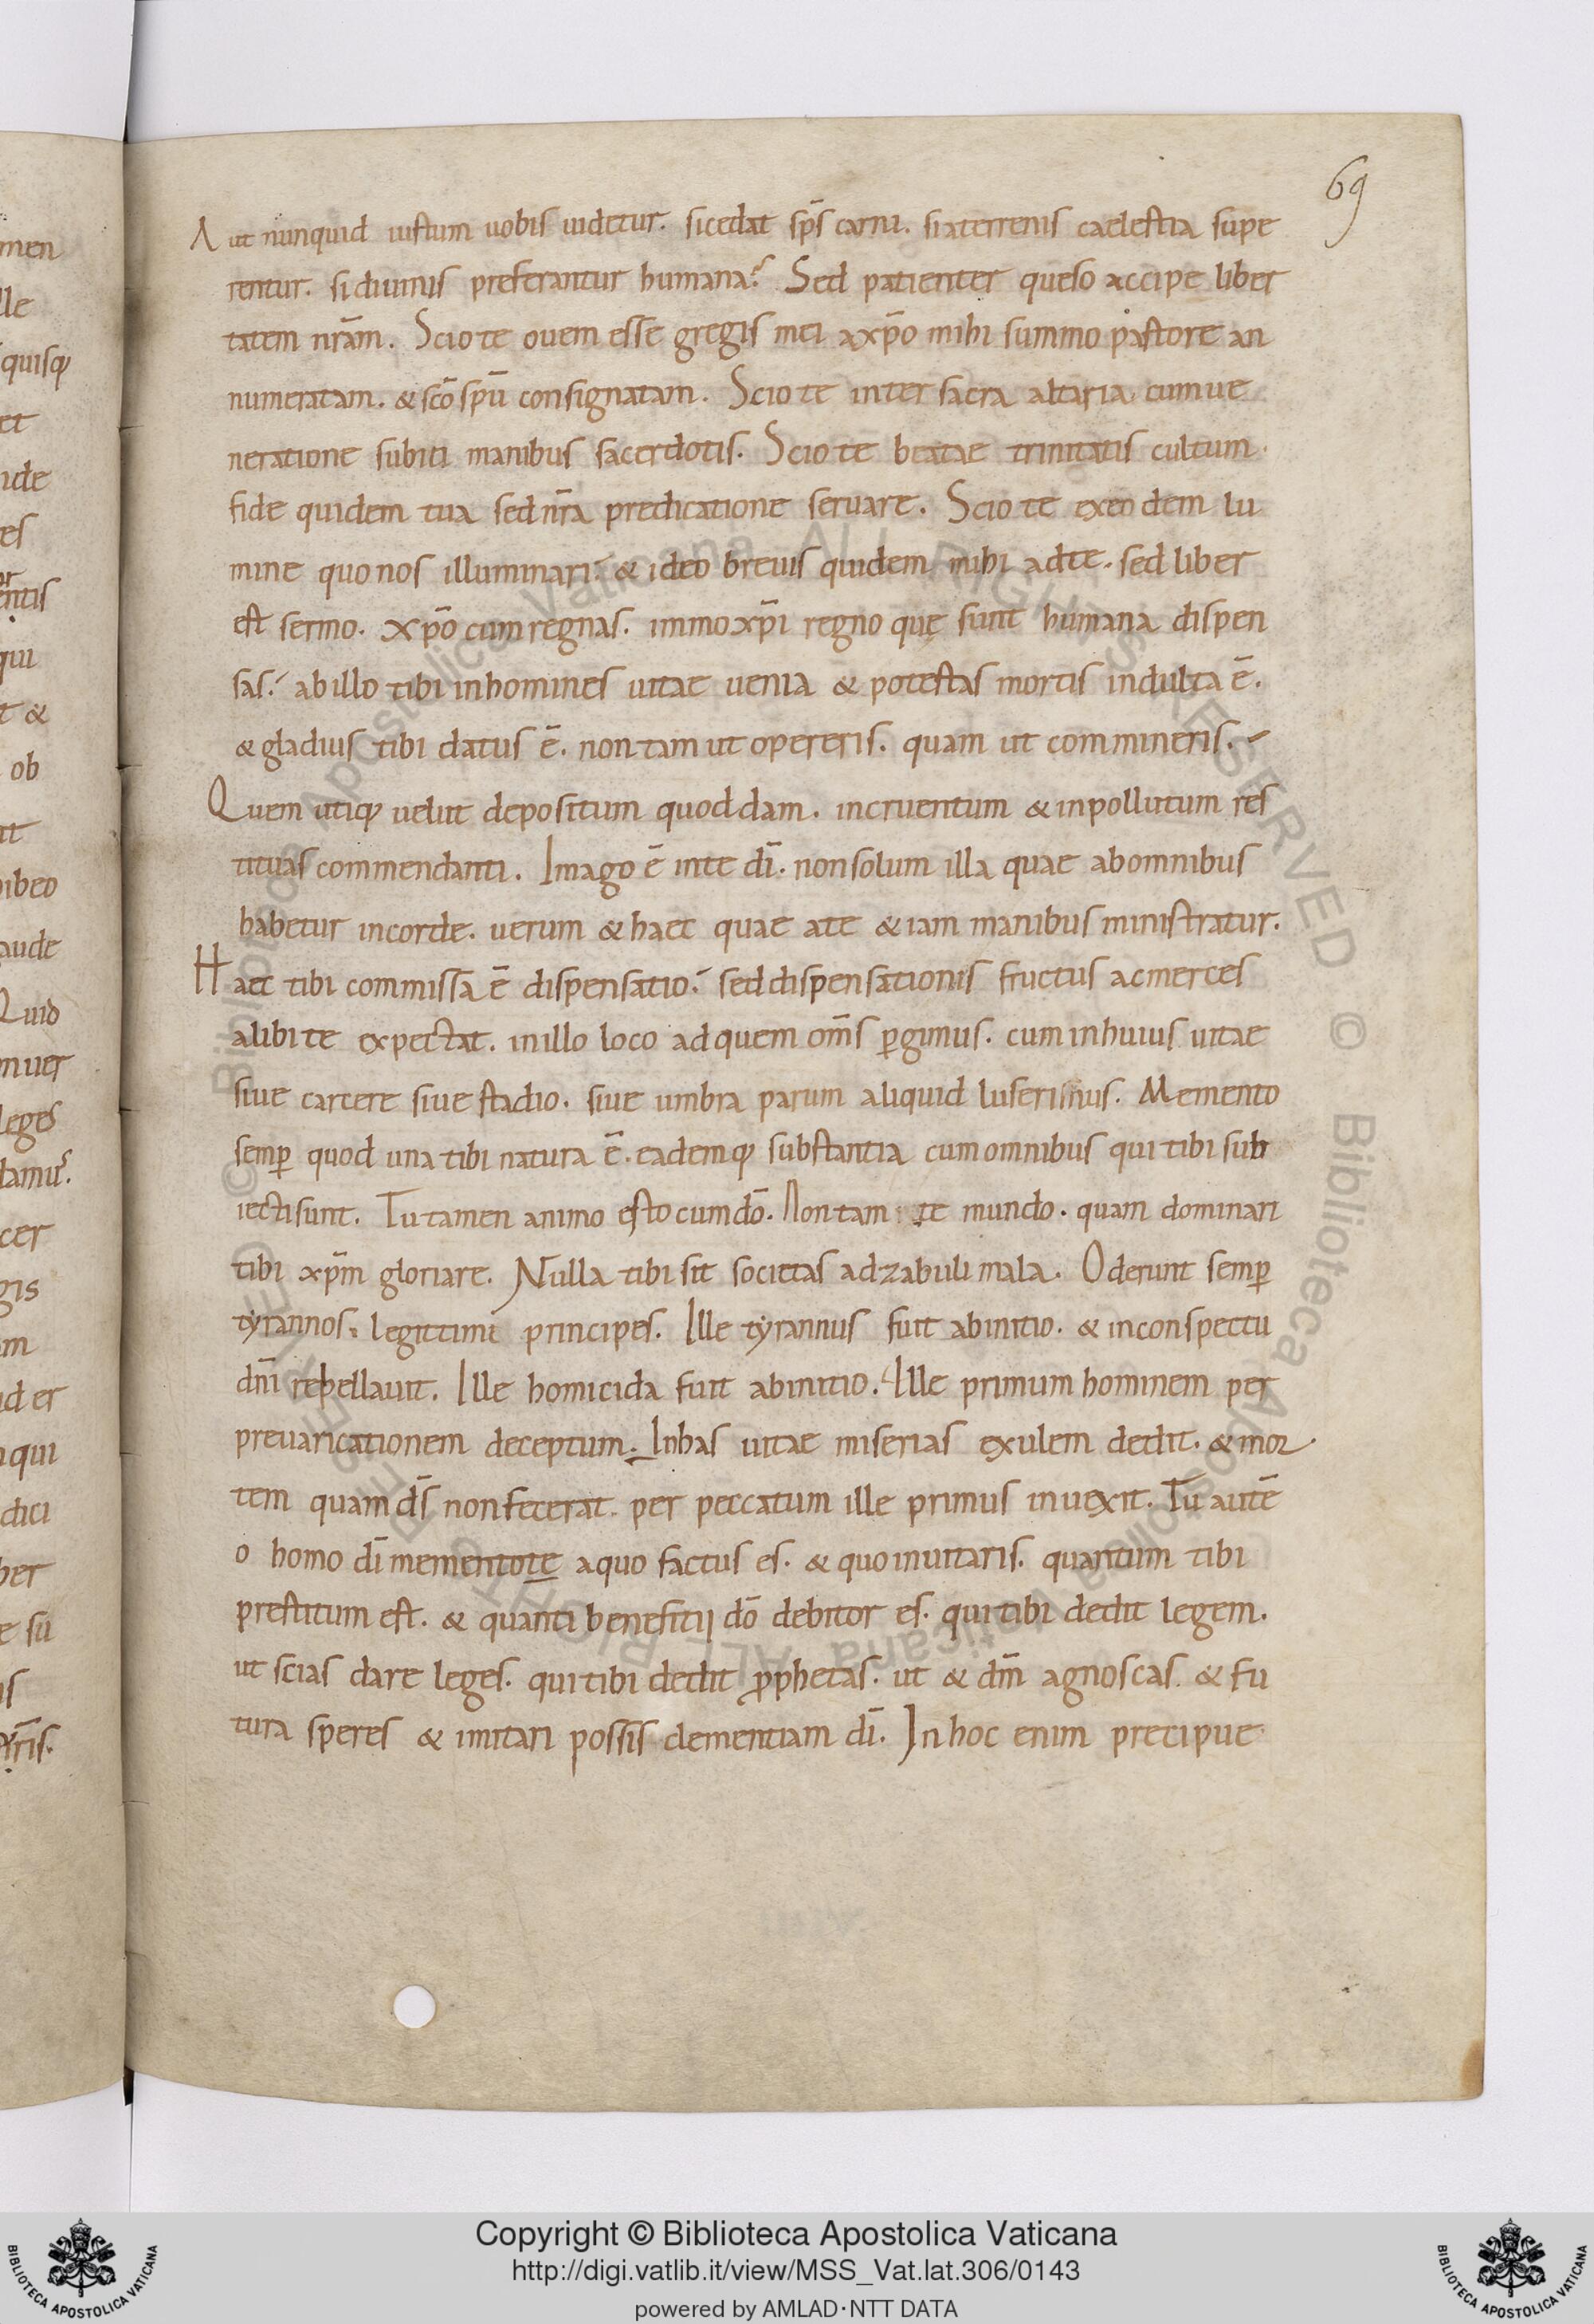 69
Aut nunquid iustum uobis uidetur. si cedat sp̄s carni. si a terrenis caelestia supe
rentur. si diuinis preferantur humana? Sed patienter queso accipe liber
tatem nr̄am. Scio te ouem esse gregis mei a xp̄o mihi summo pastore an
numeratam. & sc̄o sp̄u consignatam. Scio te inter sacra altaria cum ue
neratione subiti manibus sacerdotis. Scio te beatae trinitatis cultum
fide quidem tua sed nr̄a predicatione seruare. Scio te ex eodem lu
mine quo nos illuminari. & ideo breuis quidem mihi ad te. sed liber
est sermo. Xp̄o cum regnas. immo xp̄i regno quę sunt humana dispen
sas. ab illo tibi in homines uitae uenia & potestas mortis indulta ē.
& gladius tibi datus ē. non tam ut opereris. quam ut commineris.
Quem utiq; uelut depositum quoddam. incruentum & inpollutum res
tituas commendanti. Imago ē in te dī. non solum illa quae ab omnibus
habetur in corde. uerum & haec quae a te &iam manibus ministratur.
Haec tibi commissa ē dispensatio. sed dispensationis fructus ac merces
alibi te expectat. in illo loco ad quem om̄s ꝑgimus. cum in huius uitae
siue carcere siue stadio. siue umbra parum aliquid luserimus. Memento
semꝑ quod una tibi natura ē. eademq; substantia cum omnibus qui tibi sub
iecti sunt. Tu tamen animo esto cum dō. Non tam te mundo. quam dominari
tibi xp̄m gloriare. Nulla tibi sit societas ad zabuli mala. Oderunt semꝑ
tyrannos. legittimi principes. Ille tyrannus fuit ab initio. & in conspectu
dn̄i rebellauit. Ille homicida fuit ab initio. Ille primum hominem per
preuaricationem deceptum. In has uitae miserias exulem dedit. & mor
tem quam ds̄ non fecerat. per peccatum ille primus inuexit. Tu autē
o homo dī memento te a quo factus es. & quo inuitaris. quantum tibi
prestitum est. & quanti benefitii dō debitor es. qui tibi dedit legem.
ut scias dare leges. qui tibi dedit ꝓphetas. ut & dm̄ agnoscas. & fu
tura speres & imitari possis clementiam dī. In hoc enim precipue
Copyright © Biblioteca Apostolica Vaticana
http://digi.vatlib.it/view/MSS_Vat.lat.306/0143
powered by AMLAD·NTT DATA
BIBLIOTECA APOSTOLICA VATICANA
BIBLIOTECA APOSTOLICA VATICANA
© Biblioteca Apostolica Vaticana ALL RIGHTS RESERVED